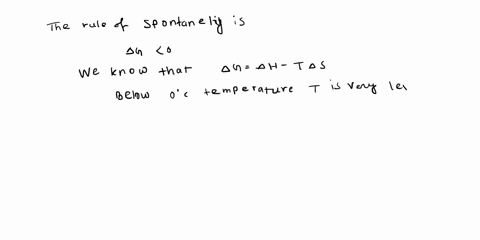 The rule of spontaneity is
ΔG < 0
We know that ΔG = ΔH - TΔS
Below 0°C temperature T is very les